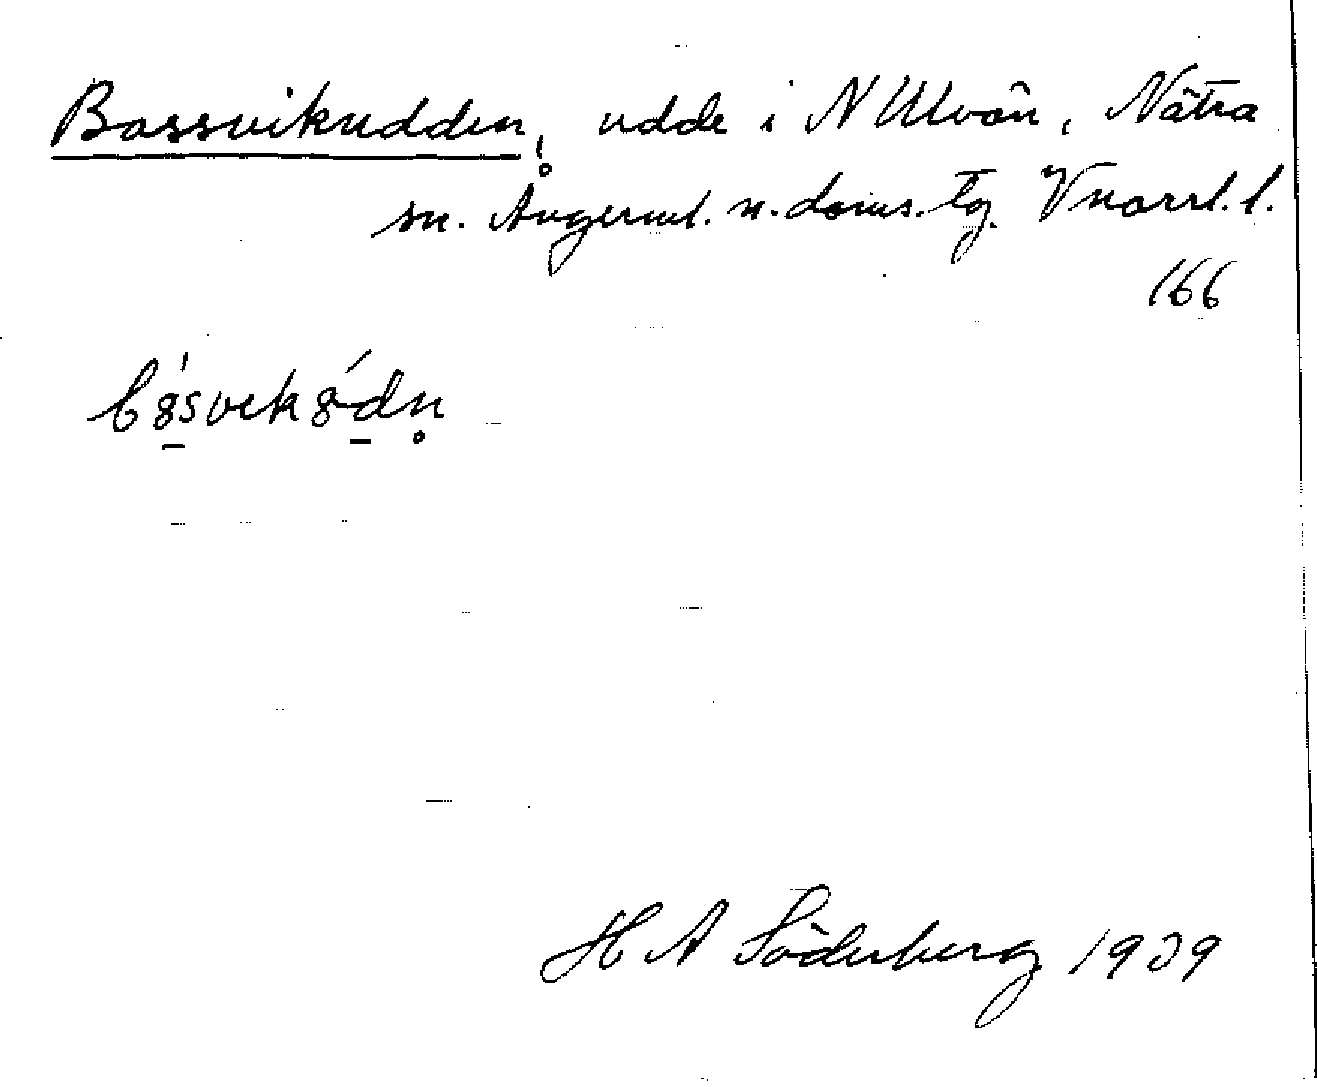 Bossvikudden, udde i N Ulvön, Nätra
sn. Ångerml. n. doms. tg. Vnorrl. l.
166
H A Söderberg 1939